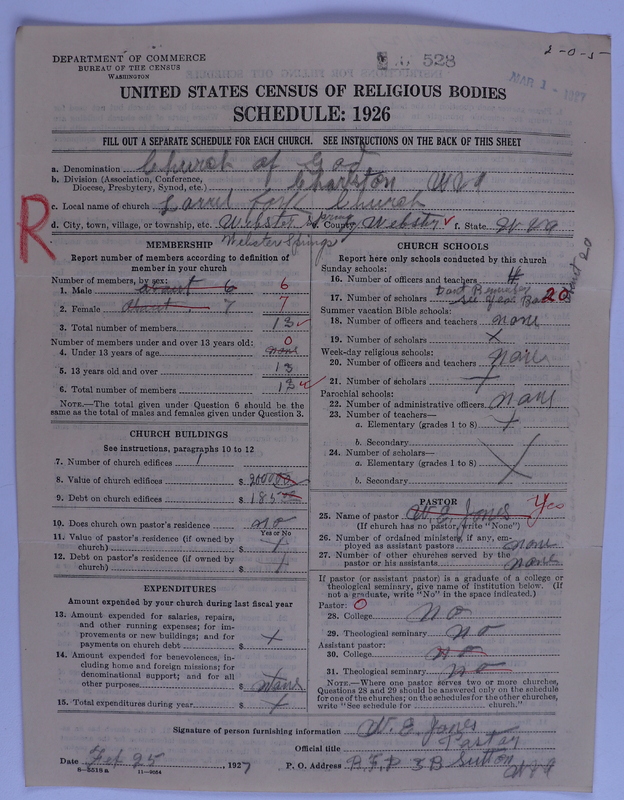 2-0-5-
528
MAR 1 - 1927
DEPARTMENT OF COMMERCE
BUREAU OF THE CENSUS
WASHINGTON
UNITED STATES CENSUS OF RELIGIOUS BODIES
SCHEDULE: 1926
FILL OUT A SEPARATE SCHEDULE FOR EACH CHURCH. SEE INSTRUCTIONS ON THE BACK OF THIS SHEET
a. Denomination Church of God
b. Division (Association, Conference,
Diocese, Presbytery, Synod, etc.) Charlston W Va
c. Local name of church Laurel Fork Church
d. City, town, village, or township, etc. Webster Spring e. County Webster f. State W. Va
Webster Springs
R
MEMBERSHIP
Report number of members according to definition of
member in your church
Number of members, by sex:
1. Male 6 6
2. Female 7 7
3. Total number of members 13
Number of members under and over 13 years old:
4. Under 13 years of age none 0
5. 13 years old and over 13
6. Total number of members 13
NOTE.—The total given under Question 6 should be
same as the total of males and females given under Question 3.
CHURCH BUILDINGS
See instructions, paragraphs 10 to 12
7. Number of church edifices 1
8. Value of church edifices $ 200000
9. Debt on church edifices $ 185
10. Does church own pastor's residence no
Yes or No
11. Value of pastor's residence (if owned by
church) $
12. Debt on pastor's residence (if owned by
church) $
EXPENDITURES
Amount expended by your church during last fiscal year
13. Amount expended for salaries, repairs,
and other running expenses; for im-
provements or new buildings; and for
payments on church debt $ x
14. Amount expended for benevolences, in-
cluding home and foreign missions; for
denominational support; and for all
other purposes $ none
15. Total expenditures during year $
CHURCH SCHOOLS
Report here only schools conducted by this church
Sunday schools:
16. Number of officers and teachers 4
17. Number of scholars 20
about 20
Summer vacation Bible schools:
18. Number of officers and teachers none
19. Number of scholars x
Week-day religious schools:
20. Number of officers and teachers none
21. Number of scholars
Parochial schools:
22. Number of administrative officers none
23. Number of teachers—
a. Elementary (grades 1 to 8)
b. Secondary
24. Number of scholars—
a. Elementary (grades 1 to 8)
b. Secondary
PASTOR
25. Name of pastor W. E. Jones Yes
(If church has no pastor, write "None")
26. Number of ordained ministers, if any, em-
ployed as assistant pastors none
27. Number of other churches served by the
pastor or his assistants none
If pastor (or assistant pastor) is a graduate of a college or
theological seminary, give name of institution below. (If
not a graduate, write "No" in the space indicated.)
Pastor: 0
28. College No
29. Theological seminary no
Assistant pastor:
30. College no
31. Theological seminary no
NOTE.—Where one pastor serves two or more churches,
Questions 28 and 29 should be answered only on the schedule
for one of the churches; on the schedules for the other churches,
write "See schedule for church."
Signature of person furnishing information W. E. Jones
Official title Pastor
Date Feb 25, 1927 P. O. Address R. F. D 3 B Sutton
W Va
6-5518a 11-9054